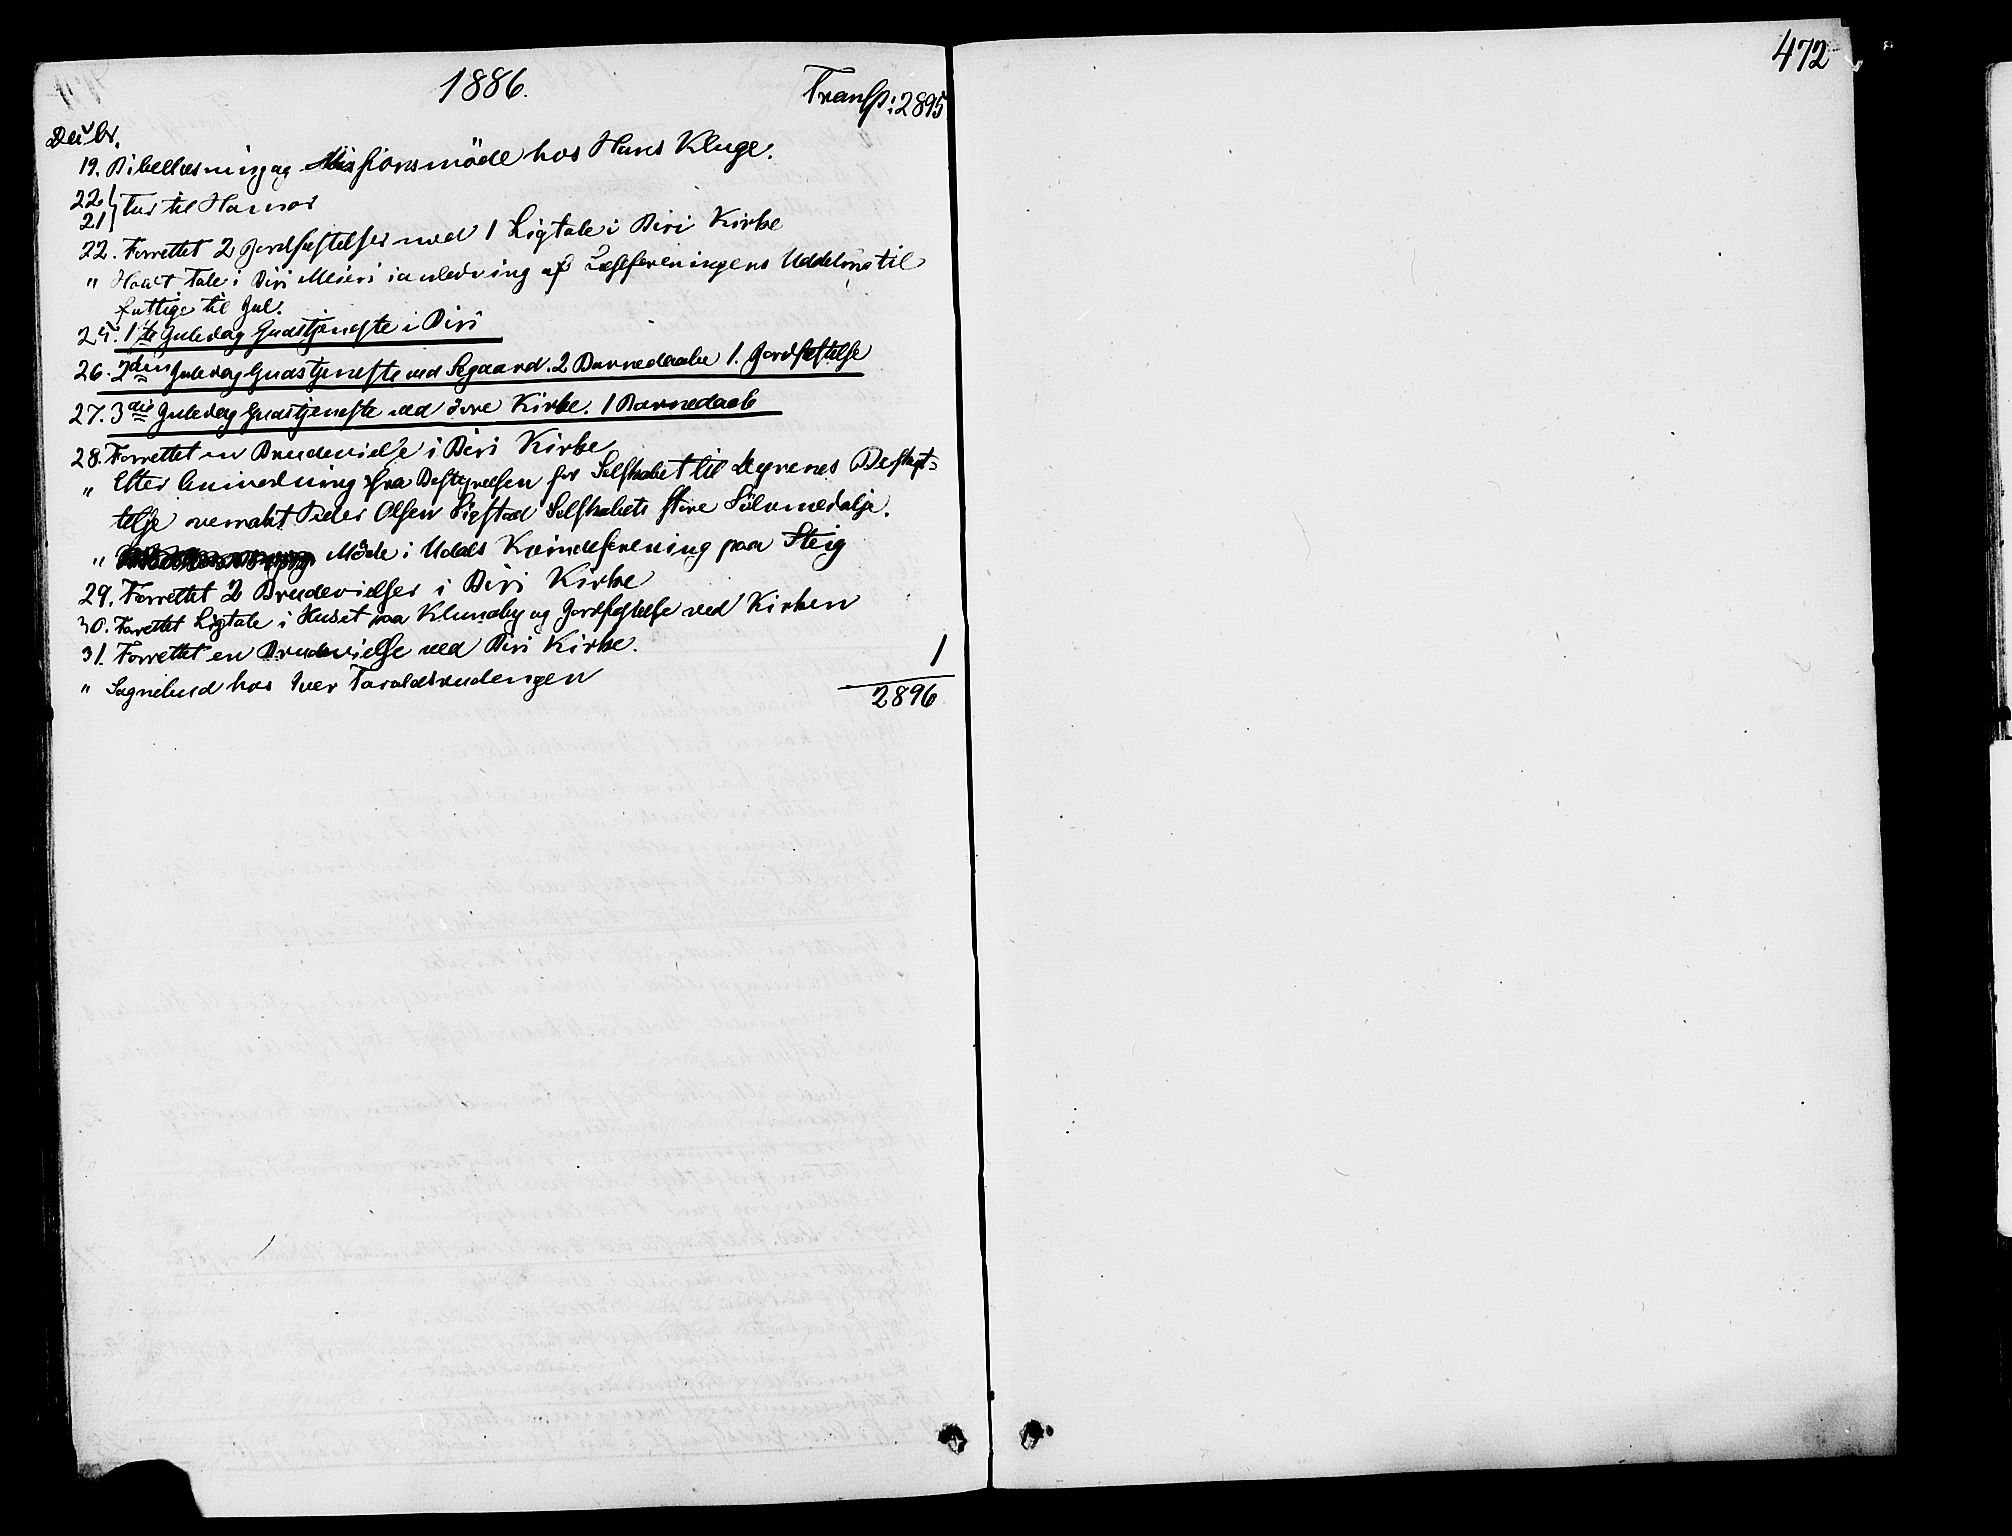 472
1886.
Transp: 2895
Decbr.
19. Bibellæsning og Missionsmöde hos Hans Kluge.
22
21 } Tur til Hamar
22. Forrettet 2 Jordfæstelser med 1 Ligtale i Biri Kirke
" Holdt Tale i Biri Meieri i anledning af Læseforeningens Uddeling til
fattige til Jul.
25. 1ste Juledag Gudstjeneste i Biri
26. 2den Juledag Gudstjeneste ved Segaard. 2 Barnedaabe 1. Jordfæstelse
27. 3die Juledag Gudstjeneste ved övre Kirke. 1 Barnedaab
28. Forrettet en Brudevielse i Biri Kirke
" Efter Anmodning fra Bestyrelsen for Selskabet til Dyrenes Beskyt-
telse overrakt Peder Olsen Sigstad Selskabets store Sölvmedalje.
" Möde i Udals Kvindeforening paa Steig
29. Forrettet 2 Brudevielser i Biri Kirke
30. Forrettet Ligtale i Huset paa Klundby og Jordfæstelse ved Kirken
31. Forrettet en Brudevielse ved Biri Kirke.
" Sognebud hos Iver Taraldsrudengen 1
2896